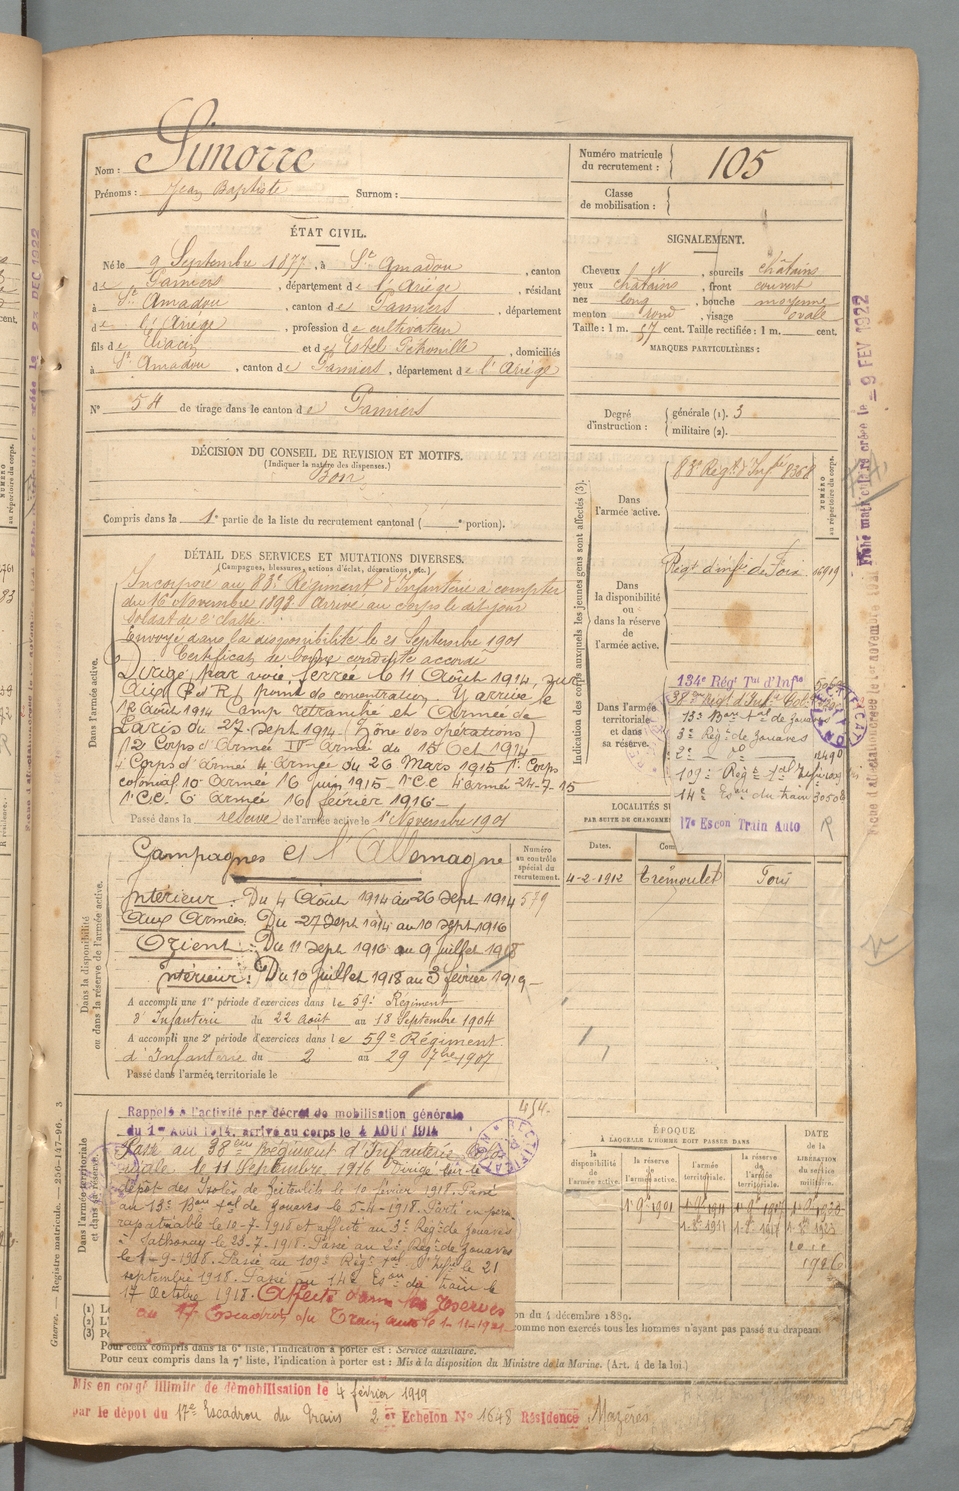 Nom : Simorre
Prénoms : Jean Baptiste Surnom :
Numéro matricule du recrutement : 105
Classe de mobilisation :
ÉTAT CIVIL.
Né le 9 Septembre 1877, à St Amadou, canton
de Pamiers, département de l'Ariège, résidant
à St Amadou, canton de Pamiers, département
de l'Ariège, profession de cultivateur
fils de Eliacin et de Estel Pétronille, domiciliés
à St Amadou, canton de Pamiers, département de l'Ariège
N° 54 de tirage dans le canton de Pamiers
SIGNALEMENT.
Cheveux , sourcils châtains
yeux châtains, front couvert
nez long, bouche moyenne
menton rond, visage ovale
Taille : 1 m. 57 cent. Taille rectifiée : 1 m. cent.
MARQUES PARTICULIÈRES :
Degré d'instruction : générale (1). 3
militaire (2).
DÉCISION DU CONSEIL DE REVISION ET MOTIFS.
(Indiquer la nature des dispenses.)
Bon
Compris dans la 1e partie de la liste du recrutement cantonal ( e portion).
DÉTAIL DES SERVICES ET MUTATIONS DIVERSES.
(Campagnes, blessures, actions d'éclat, décorations, etc.)
Dans l'armée active.
Incorporé au 83e Régiment d'Infanterie à compter
du 16 Novembre 1898 arrivé au corps le dit jour
soldat de 2e classe.
Envoyé dans la disponibilité le 21 Septembre 1901
Certificat de bonne conduite accordé
Dirigé par voie ferrée le 11 Août 1914, sur
point de concentration Y arrive le
12 Août 1914 Camp retranché et Armée de
Paris du 27-Sept 1914 (Zône des opérations)
12 Corps d'Armée IVe Armée du 15 Oct 1914
Corps d'Armée 4 Armée du 26 Mars 1915 1e Corps
colonial 10 Armée 16 juin 1915 1e C.C 4e Armée 24-7-15
1e C.C. 6 Armée 16 février 1916
Passé dans la réserve de l'armée active le 1er Novembre 1901
Dans la disponibilité ou dans la réserve de l'armée active.
Numéro au contrôle spécial du recrutement.
579
Campagnes et l'Allemagne
Intérieur : Du 4 Août 1914 au 26 Sept 1914
Aux Armées. Du 27 Sept 1914 au 10 Sept 1916
Orient : Du 11 Sept 1916 au 9 juillet 1918
Intérieur : Du 10 Juillet 1918 au 3 février 1919
A accompli une 1re période d'exercices dans le 59e Régiment
d'Infanterie du 22 Août au 18 Septembre 1904
A accompli une 2e période d'exercices dans le 59e Régiment
d'Infanterie du 2 au 29 7bre 1907
Passé dans l'armée territoriale le
Dans l'armée territoriale et dans sa réserve.
Rappelé à l'activité par décret de mobilisation générale
du 1er Août 1914, arrivé au corps le 4 AOUT 1914
Passé au 38eme Régiment d'Infanterie
le 11 Septembre 1916 Dirigé sur le
dépôt des Isolés de Zeitenlik le 10 février 1918. Passé
au 13e Bon tal de zouaves le 5-4-1918. Parti en perm
rapatriable le 10-7-1918 et affecté au 3e Régt de zouaves
à Sathonay le 23-7-1918. Passé au 2e Régt de zouaves
le 1-9-1918. Passé au 109e Régt Tal d'Infie le 21
septembre 1918. Passé au 14e Eson du train le
17 Octobre 1918. Affecté dans les réserves
au 17 Escadron du Train auto le 1-11-1921
Indication des corps auxquels les jeunes gens sont affectés (3).
NUMÉRO au répertoire du corps.
Dans l'armée active.
83e Régt d'Infie 8368
Dans la disponibilité ou dans la réserve de l'armée active.
Régt d'infie de Foix 16919
Dans l'armée territoriale et dans sa réserve.
134e Régt Tal d'Infie
38eme Régt d'Infie
13e Bon tal de zouaves
3e Régt de zouaves
2e do
109e Régt tal
14e Eson du train 30508
17e Escon Train Auto
RECTIFICATION
LOCALITÉS
PAR SUITE DE
Dates.
4-2-1912 Trémoulet Foix
ÉPOQUE
A LAQUELLE L'HOMME DOIT PASSER DANS
la disponibilité de l'armée active.
la réserve de l'armée active.
l'armée territoriale.
la réserve de l'armée territoriale.
DATE de la LIBÉRATION du service militaire.
1er 9e 1901
1926
on du 4 décembre 1889.
comme non exercés tous les hommes n'ayant pas passé au drapeau.
Pour ceux compris dans la 6e liste, l'indication à porter est : Service auxiliaire.
Pour ceux compris dans la 7e liste, l'indication à porter est : Mis à la disposition du Ministre de la Marine. (Art. 4 de la loi.)
Mis en congé illimité de démobilisation le 4 février 1919
par le dépôt du 17e Escadron du Train 2 er Echelon N° 1648 Résidence Mazères
Guerre. — Registre matricule. — 226-147-96. 3
Fiche matricule recréée le - 9 FEV 1922